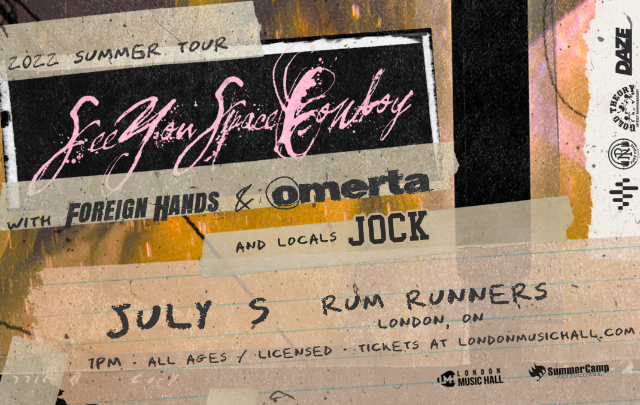 2022 SUMMER TOUR
SeeYouSpaceCowboy
WITH FOREIGN HANDS & omerta
AND LOCALS JOCK
JULY 5 RUM RUNNERS
LONDON, ON
7PM - ALL AGES / LICENSED - TICKETS AT LONDONMUSICHALL.COM
LONDON
MUSIC HALL
SummerCamp
PRODUCTIONS
DAZE
BOLD THEORY